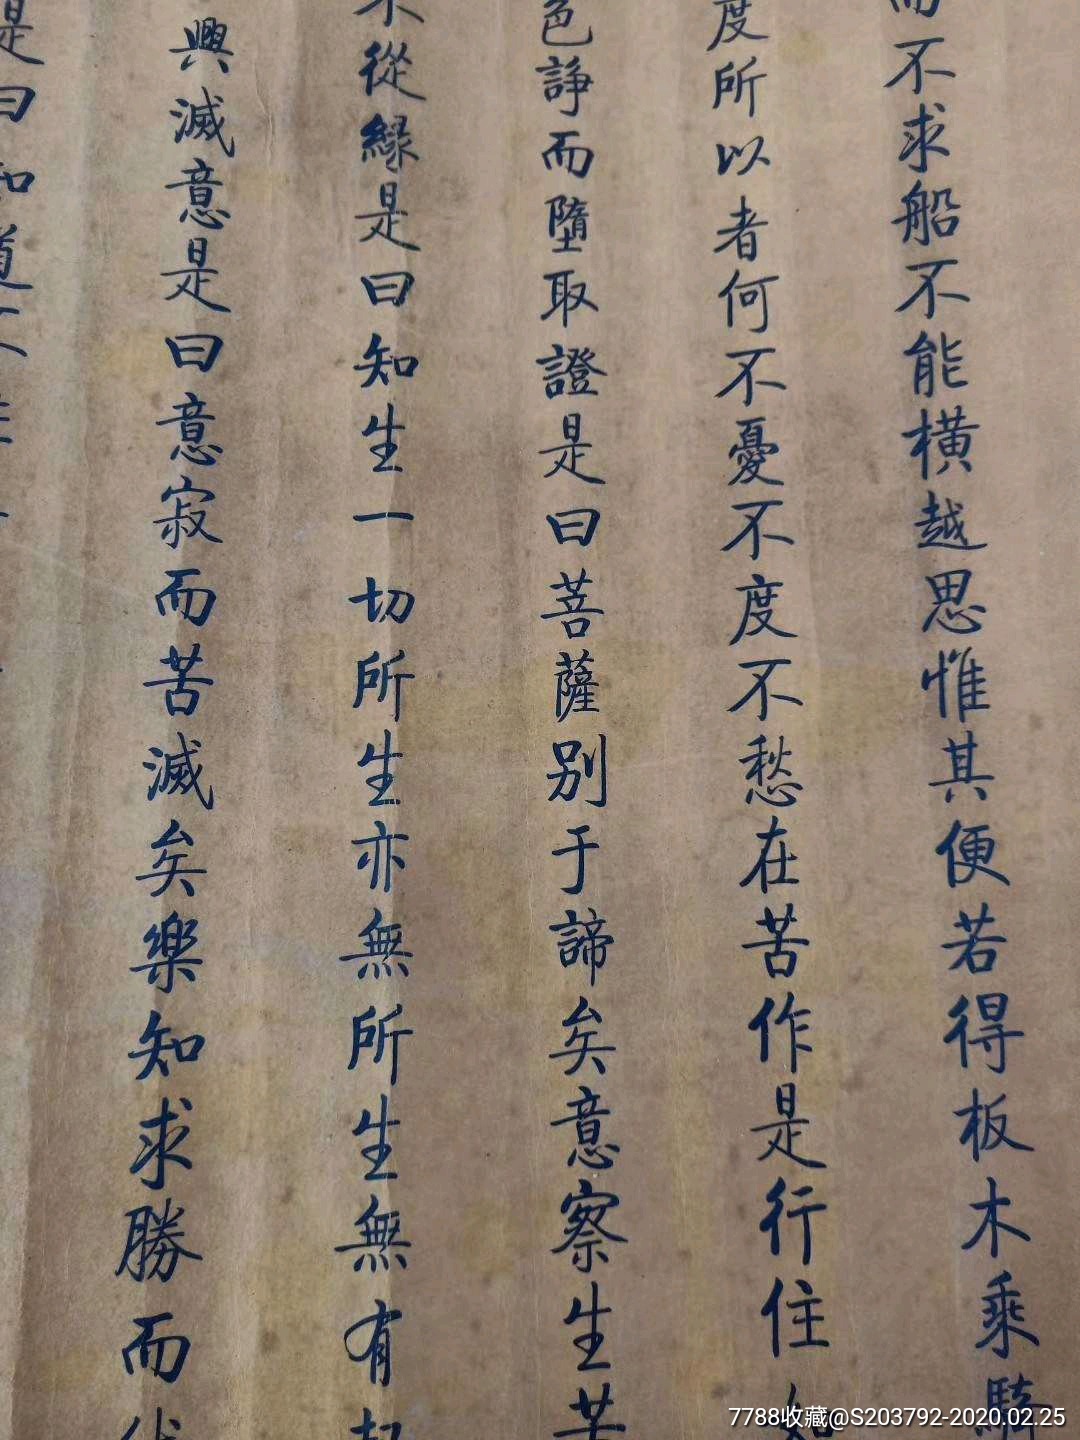 而不求船不能橫越思惟其便若得板木乘騎
度所以者何不憂不度不愁在苦作是行住知
色諍而墮取證是曰菩薩别于諦矣意察生苦
不從緣是曰知生一切所生亦無所生無有起
興滅意是曰意寂而苦滅矣樂知求勝而
是曰知道
7788收藏@S203792-2020.02.25